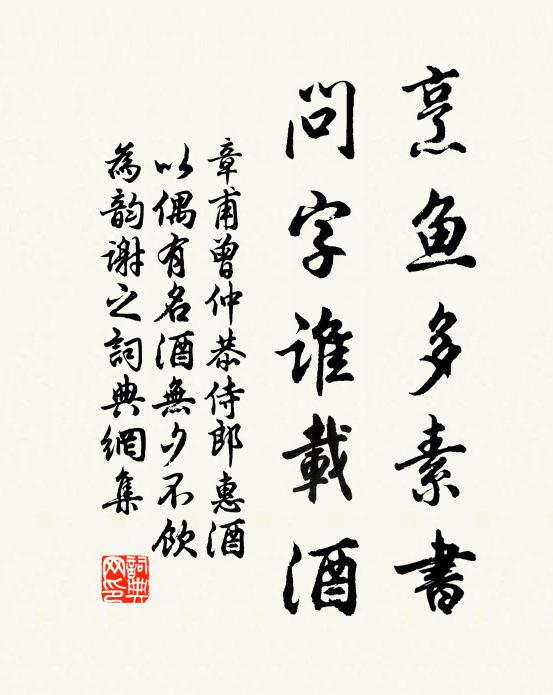 烹魚多素書
問字誰載酒
章甫曾仲恭侍郎惠酒
以偶有名酒無夕不飲
為韵謝之詞典網集
詞典网印